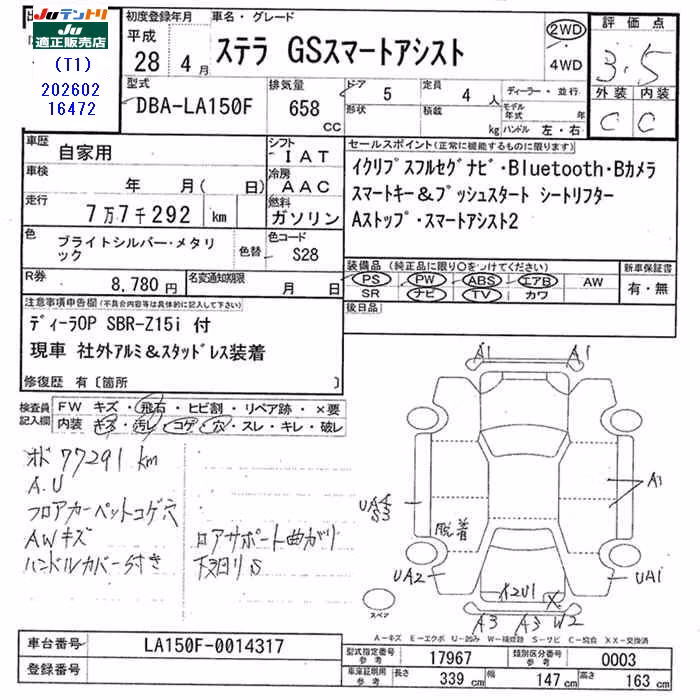 JUテントリ
JU
適正販売店
(T1)
202602
16472
初度登録年月
平成
28年 4月
車名・グレード
ステラ GSスマートアシスト
2WD
4WD
評価点
3.5
外装 内装
C C
型式
DBA-LA150F
排気量
658
CC
ドア
5
形状
定員
4人
積載
kg
ディーラー・並行
モデル年式 年
ハンドル 左・右
車歴
自家用
シフト
IAT
車検
年 月(日)
冷房
AAC
走行
7万7千292 km
燃料
ガソリン
色
ブライトシルバー・メタリック
色替
色コード
S28
R券
8,780円
名変通知期限
月 日
セールスポイント(正常に機能するものに限ります)
イクリプスフルセグナビ・Bluetooth・Bカメラ
スマートキー&プッシュスタート シートリフター
Aストップ・スマートアシスト2
装備品(純正品に限り○をつけてください)
PS PW ABS エアB AW
SR ナビ TV カワ
新車保証書
有・無
後日品
注意事項申告欄(不具合内容等は具体的に記入して下さい)
ディーラOP SBR-Z15i 付
現車 社外アルミ&スタッドレス装着
修復歴 有〔箇所 〕
検査員記入欄
FW キズ・飛石・ヒビ割・リペア跡・×要
内装 キズ・汚レ・コゲ・穴・スレ・キレ・破レ
オド 77291 km
A.U
フロアカーペットコゲ穴
AWキズ
ハンドルカバー付き
ロアサポート曲がり
下回りS
A1 A1
A1
UA4
S3
脱着
UA2
UA1
X2U1
X
A3 A3 W2
スペア
A-キズ E-エクボ U-凹み W-補修跡 S-サビ C-腐食 XX-交換済
車台番号
LA150F-0014317
登録番号
型式指定番号
参考
17967
類別区分番号
参考
0003
車庫証明用
参考
長さ 339 cm
幅 147 cm
高さ 163 cm